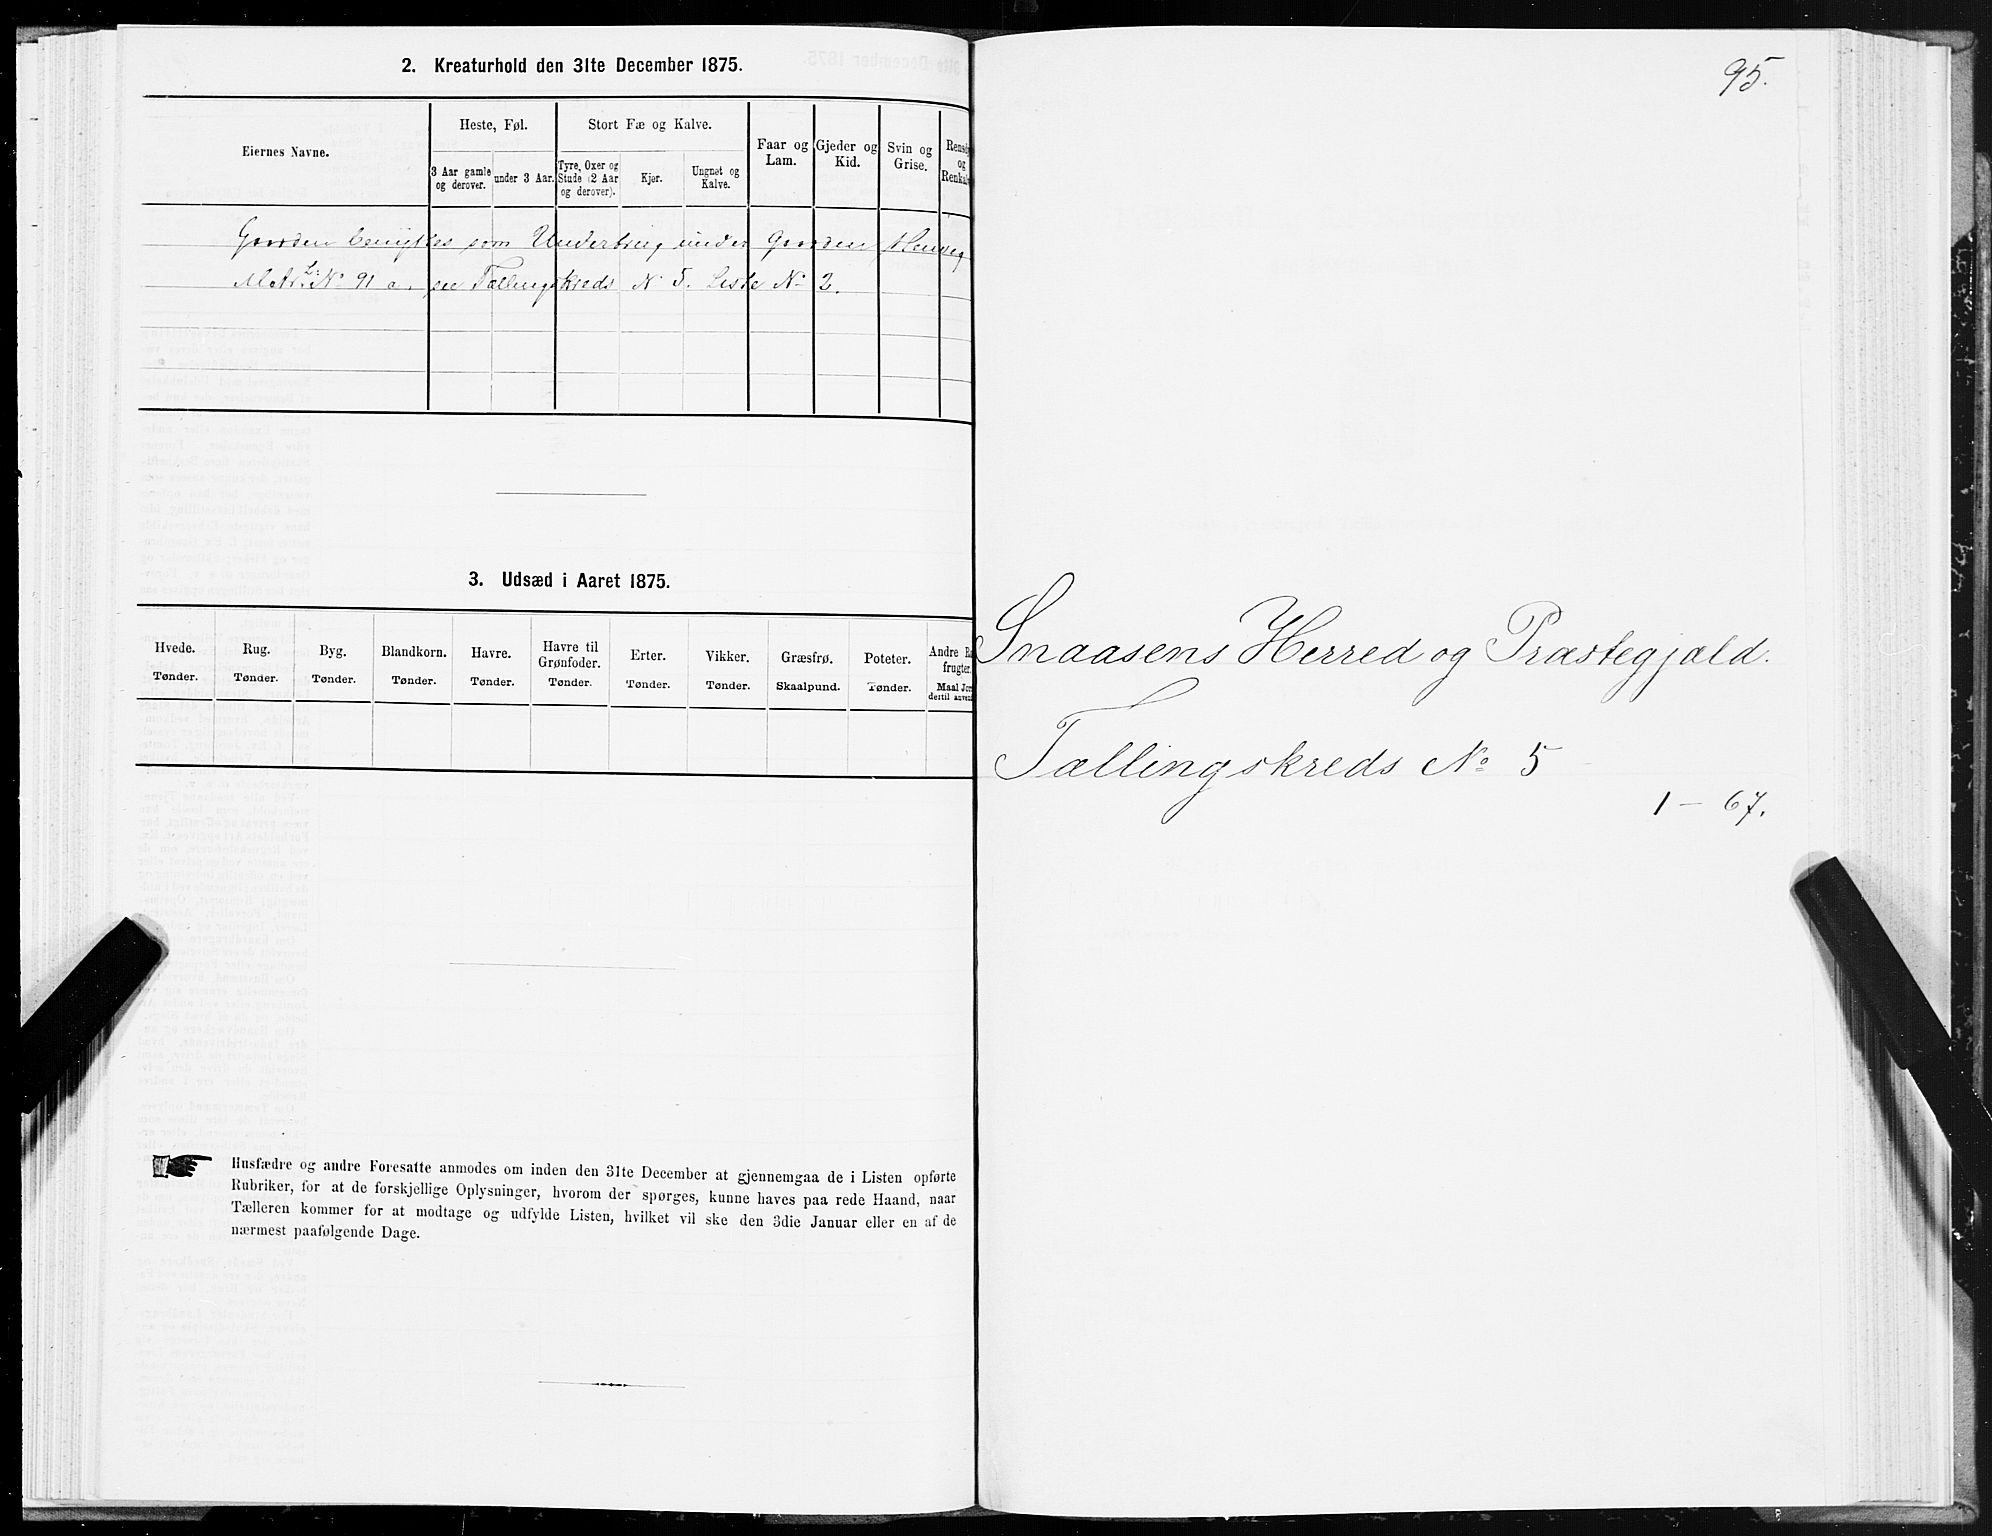 2. Kreaturhold den 31te December 1875.
Eiernes Navne.
Heste, Føl.
Stort Fæ og Kalve.
Faar og Lam.
Gjeder og Kid.
Svin og Grise.
3 Aar gamle og derover.
under 3 Aar.
Tyre, Oxer og Stude (2 Aar og derover).
Kjør.
Ungnøt og Kalve.
Gaarden benyttes som Underbrug under Gaarden
Matr. L: No 91 a. see Tællingskreds No 5. Liste No 2.
3. Udsæd i Aaret 1875.
Hvede. Tønder.
Rug. Tønder.
Byg. Tønder.
Blandkorn. Tønder.
Havre. Tønder.
Havre til Grønfoder. Tønder.
Erter. Tønder.
Vikker. Tønder.
Græsfrø. Skaalpund.
Poteter. Tønder.
Husfædre og andre Foresatte anmodes om inden den 31te December at gjennemgaa de i Listen opførte
Rubriker, for at de forskjellige Oplysninger, hvorom der spørges, kunne haves paa rede Haand, naar
Tælleren kommer for at modtage og udfylde Listen, hvilket vil ske den 3die Januar eller en af de
nærmest paafølgende Dage.
95.
Snaasens Herred og Præstegjæld.
Tællingskreds No 5
1 – 67.